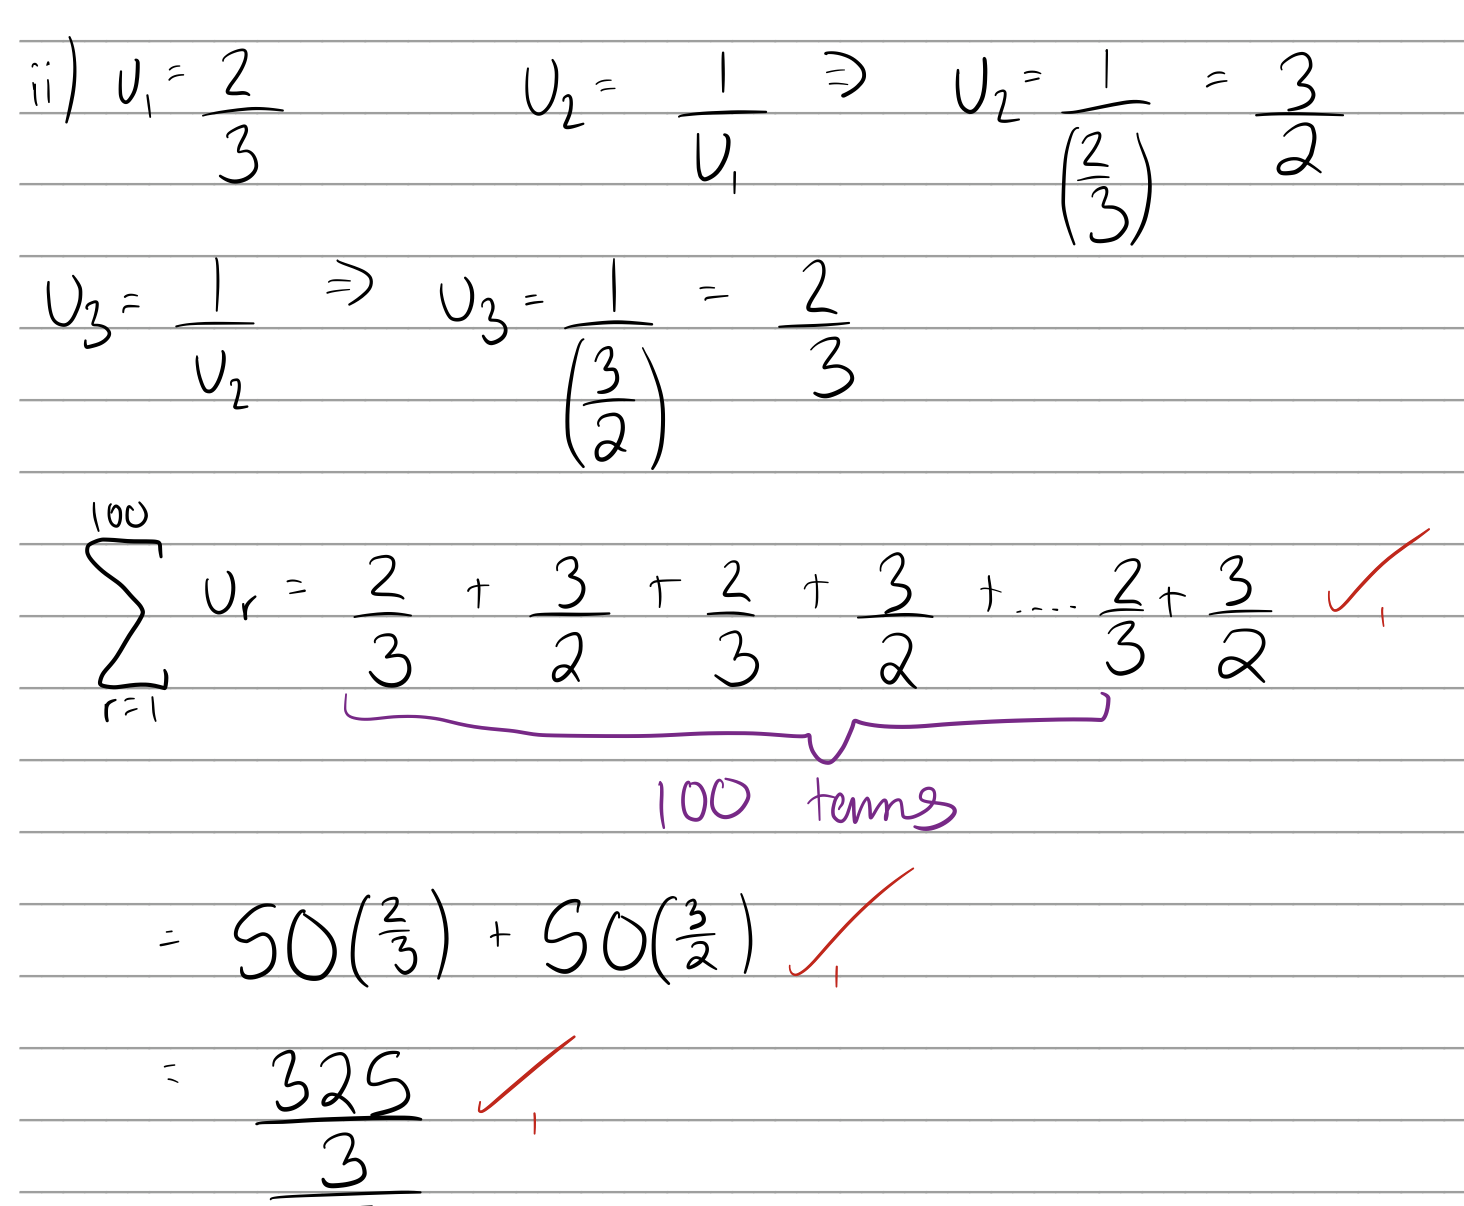 ii) U₁ = 2/3 U₂ = 1/U₁ ⇒ U₂ = 1/(2/3) = 3/2
U₃ = 1/U₂ ⇒ U₃ = 1/(3/2) = 2/3
∑_{r=1}^{100} Ur = 2/3 + 3/2 + 2/3 + 3/2 + ..... 2/3 + 3/2 ✓ 1
100 terms
= 50(2/3) + 50(3/2) ✓ 1
= 325/3 ✓ 1